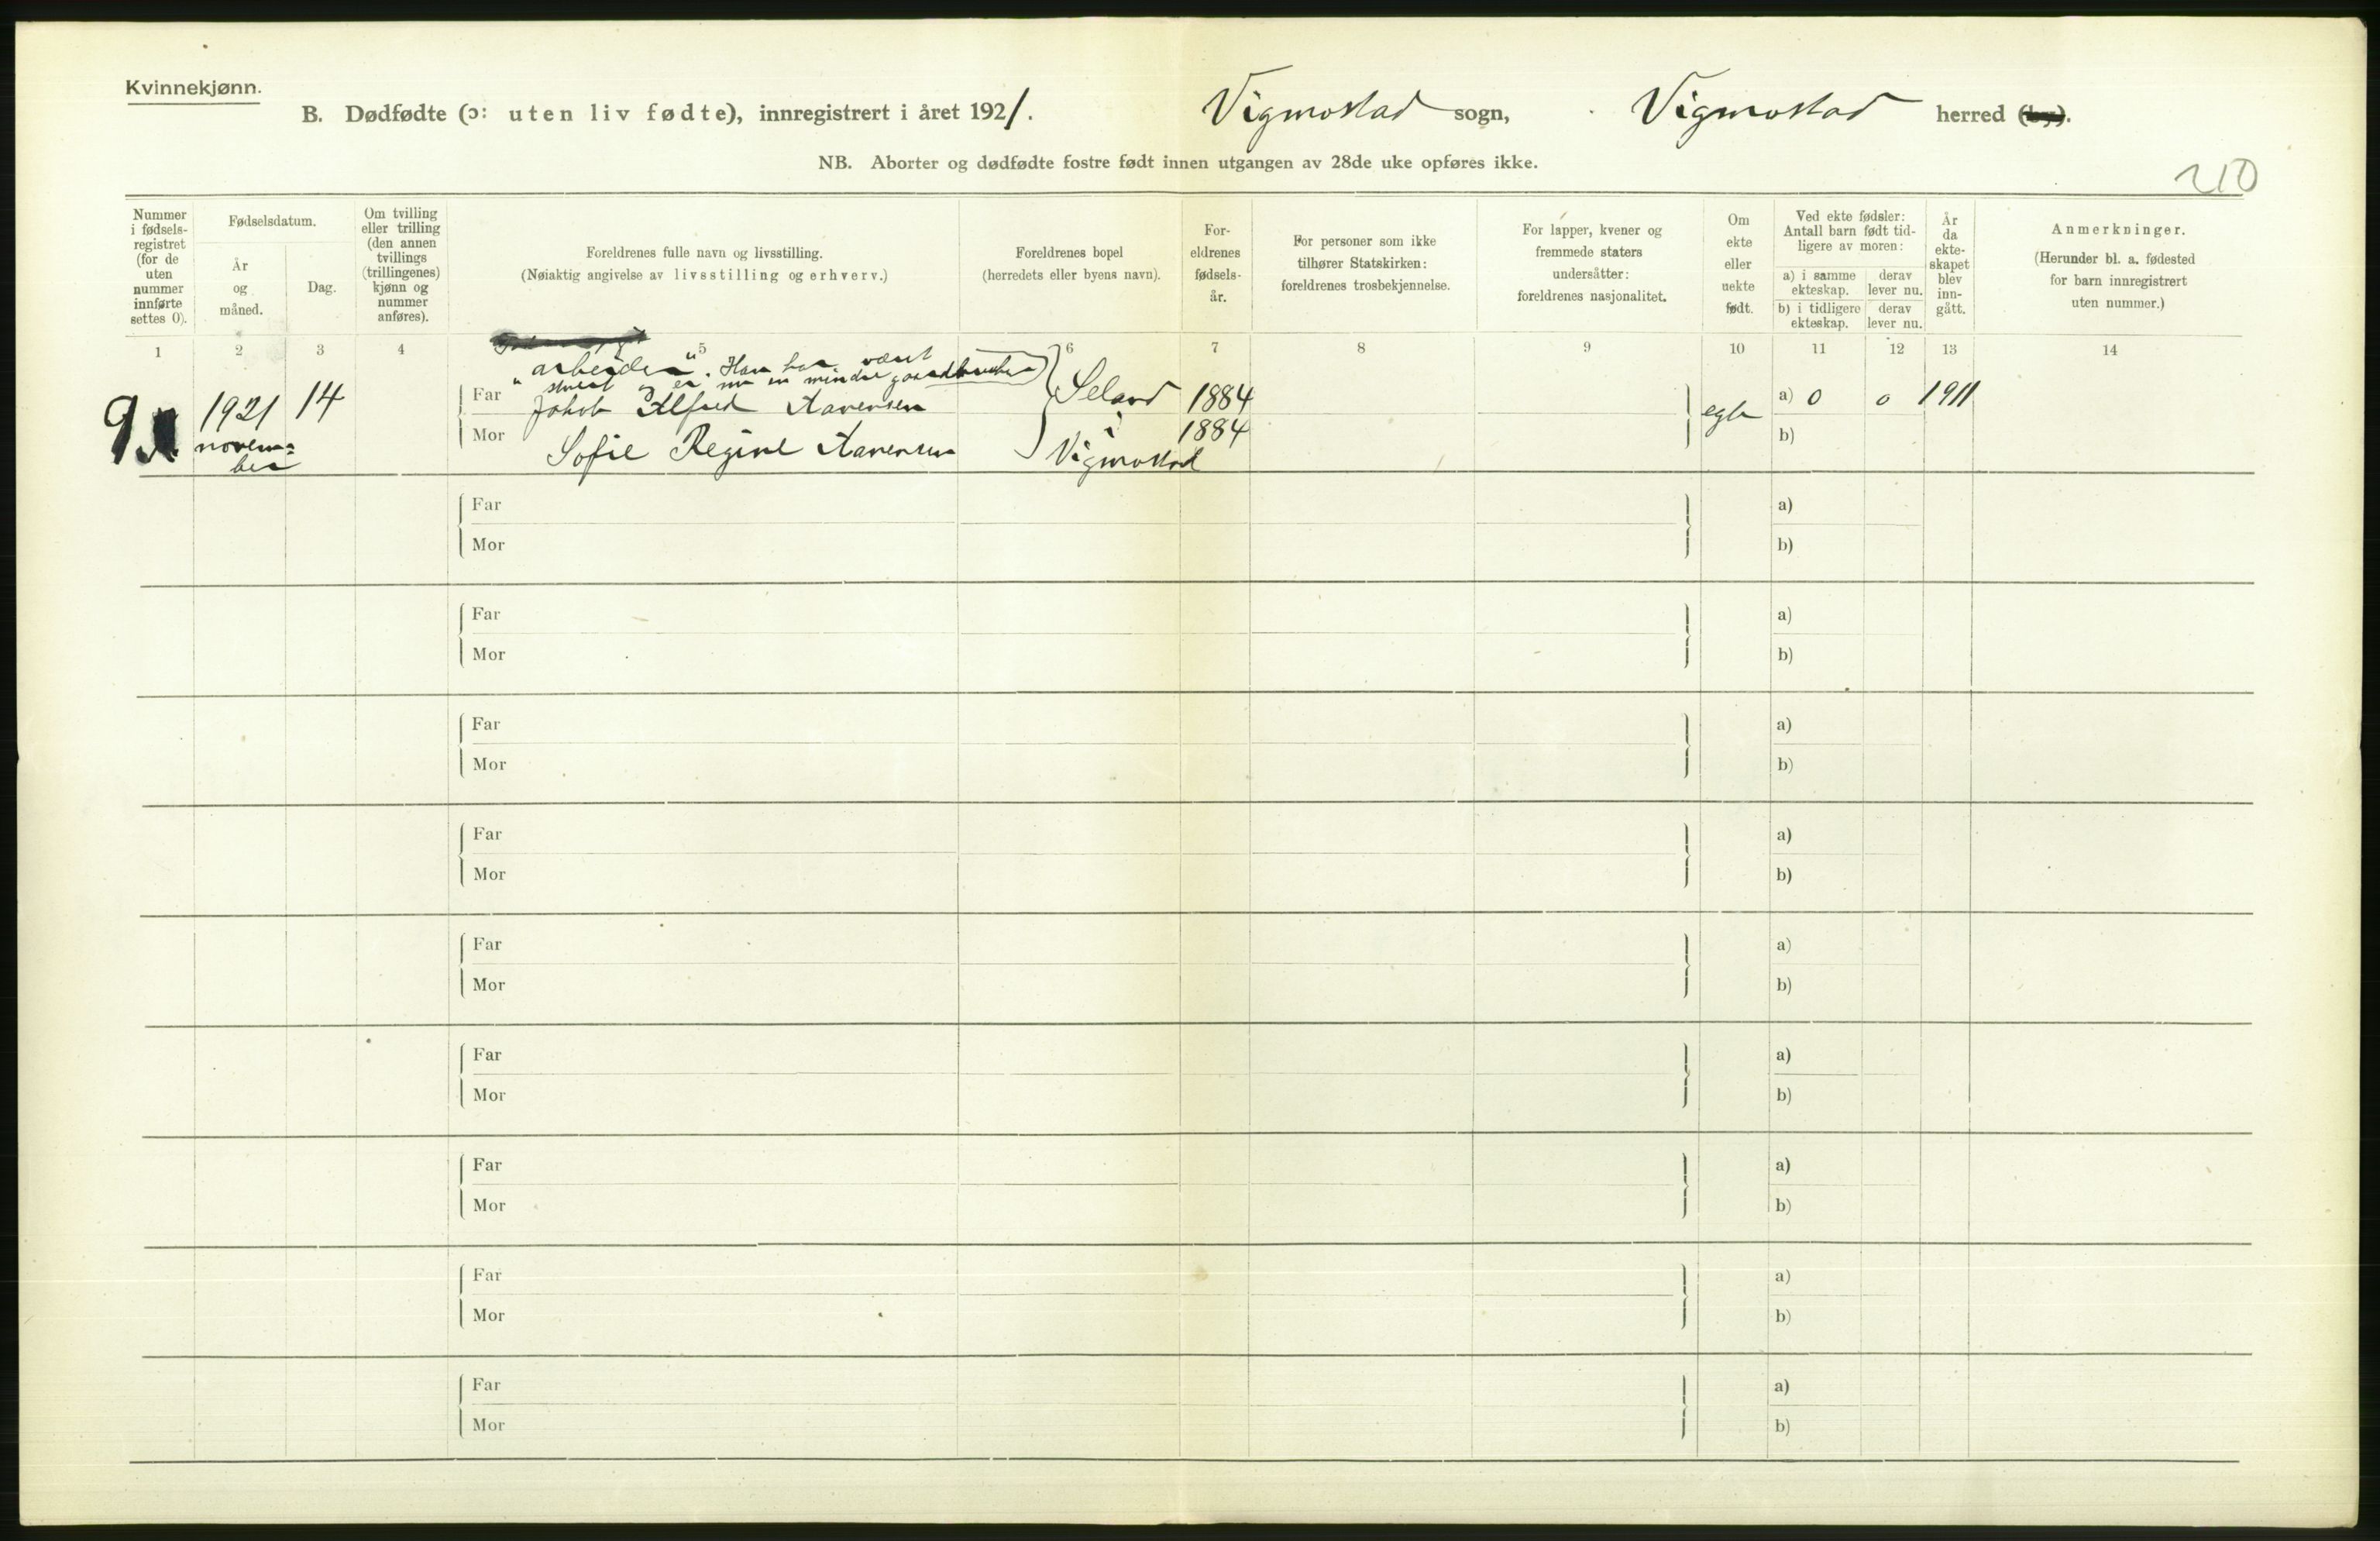 Kvinnekjønn.
B. Dødfødte (ɔ: uten liv fødte), innregistrert i året 1921. Vigmostad sogn, Vigmostad herred (by).
NB. Aborter og dødfødte fostre født innen utgangen av 28de uke opføres ikke.
210
Nummer
i fødsels-
registret
(for de
uten
nummer
innførte
settes 0).
Fødselsdatum.
År
og
måned.
Dag.
Om tvilling
eller trilling
(den annen
tvillings
(trillingenes)
kjønn og
nummer
anføres).
Foreldrenes fulle navn og livsstilling.
(Nøiaktig angivelse av livsstilling og erhverv.)
Foreldrenes bopel
(herredets eller byens navn).
For-
eldrenes
fødsels-
år.
For personer som ikke
tilhører Statskirken:
foreldrenes trosbekjennelse.
For lapper, kvener og
fremmede staters
undersåtter:
foreldrenes nasjonalitet.
Om
ekte
eller
uekte
født.
Ved ekte fødsler:
Antall barn født tid-
ligere av moren:
a) i samme
ekteskap.
derav
lever nu.
b) i tidligere
ekteskap.
derav
lever nu.
År
da
ekte-
skapet
blev
inn-
gått.
Anmerkninger.
(Herunder bl. a. fødested
for barn innregistrert
uten nummer.)
1 2 3 4 5 6 7 8 9 10 11 12 13 14
"arbeider". Han har været
og er nu en mindre gaardbruker
9 1921 14 Far Jakob Alfred Aanensen Seland 1884 a) 0 0 1911
novem= i egte
ber Mor Sofie Regine Aanensen Vigmostad 1884 b)
Far a)
Mor b)
Far a)
Mor b)
Far a)
Mor b)
Far a)
Mor b)
Far a)
Mor b)
Far a)
Mor b)
Far a)
Mor b)
Far a)
Mor b)
Far a)
Mor b)